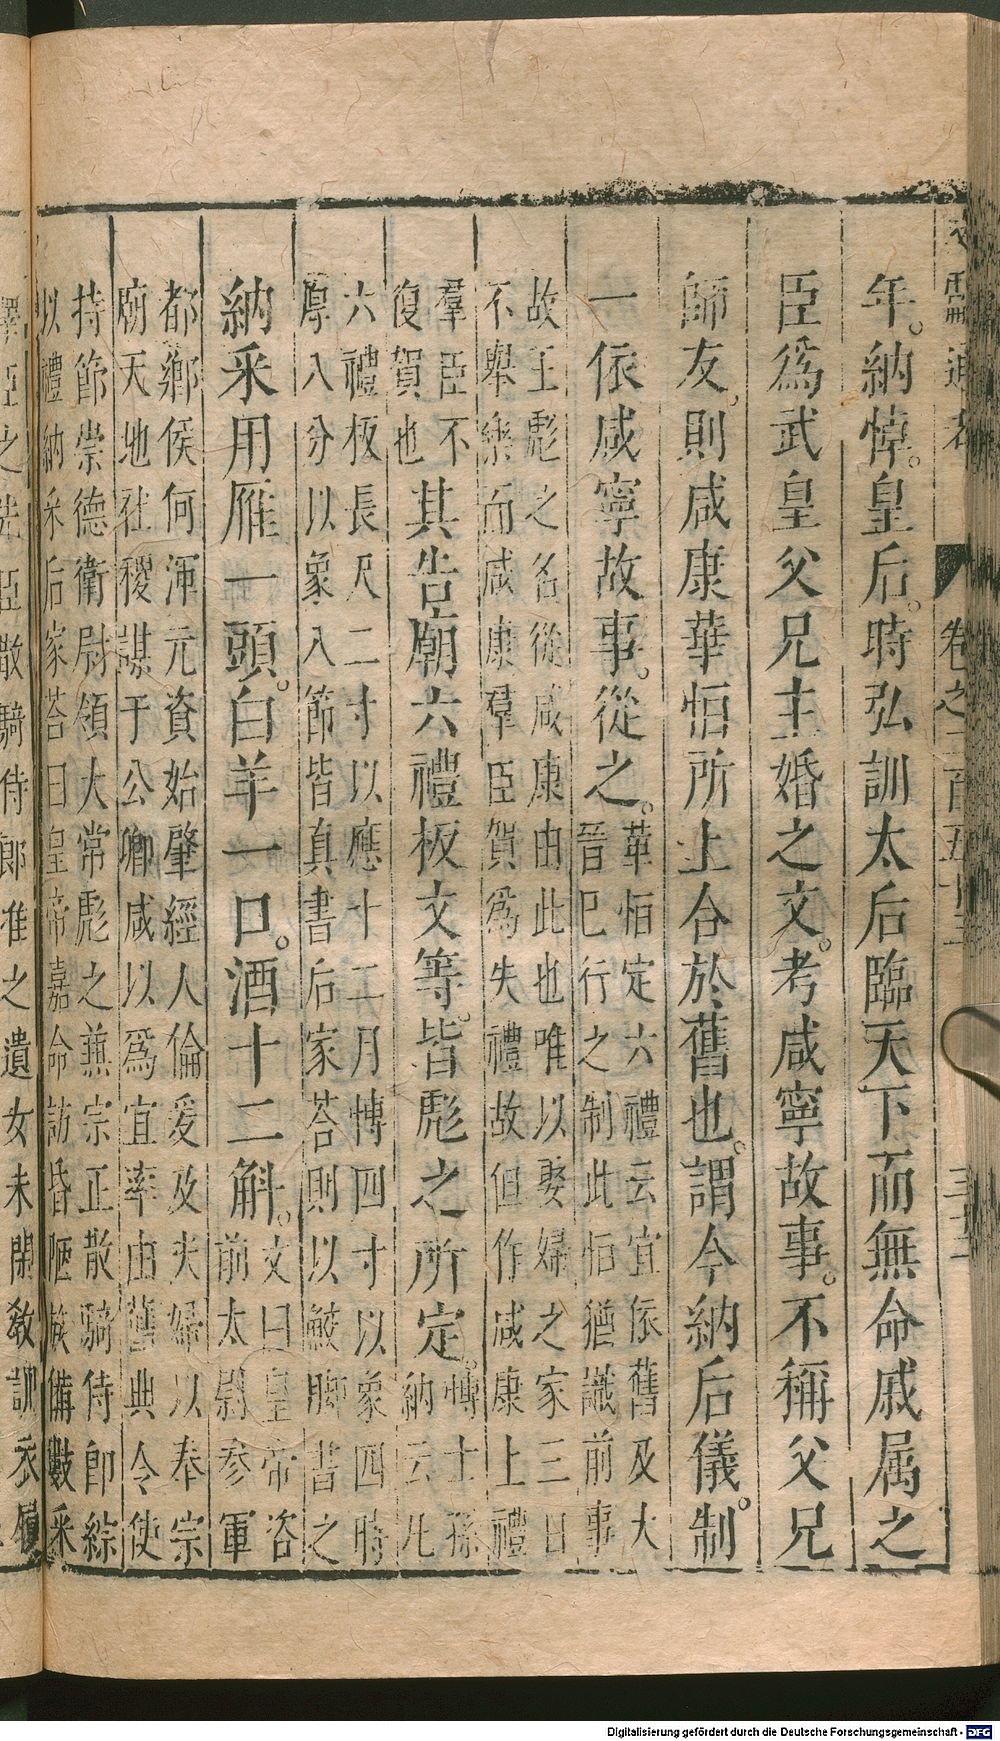 卷之二百五十三
年。納悼。皇后。時弘訓太后臨天下而無命戚属之
臣爲武皇父兄主婚之文。考咸寧故事。不稱父兄
師友。則咸康華恒所上合於舊也。謂今納后儀制。
一依咸寧故事。從之。華恒定六禮云宜依舊及大
晉巳行之制此恒猶識前事
故王彪之名從咸康由此也唯以娶婦之家三日
不舉樂而咸康羣臣賀爲失禮故但作咸康上禮
羣臣不
復賀也
其告廟六禮板文等。皆彪之所定。博士孫
納云凡
六禮板長尺二寸以應十二月博四寸以象四時
厚八分以象八節皆真書后家荅則以鮫脚書之
納采用雁一頭。白羊一口。酒十二斛。文曰皇帝咨
前太尉參軍
都鄉侯何渾元資始肇經人倫爰及夫婦以奉宗
廟天地社稷謀于公卿咸以爲宜率由舊典令使
持節崇德衛尉領大常彪之兼宗正散騎侍郎綜
以禮納采后家荅曰皇帝嘉命訪昏陋族備數采
擇臣之先臣散騎侍郎准之遺女未閑教訓衣履
Digitalisierung gefördert durch die Deutsche Forschungsgemeinschaft - DFG